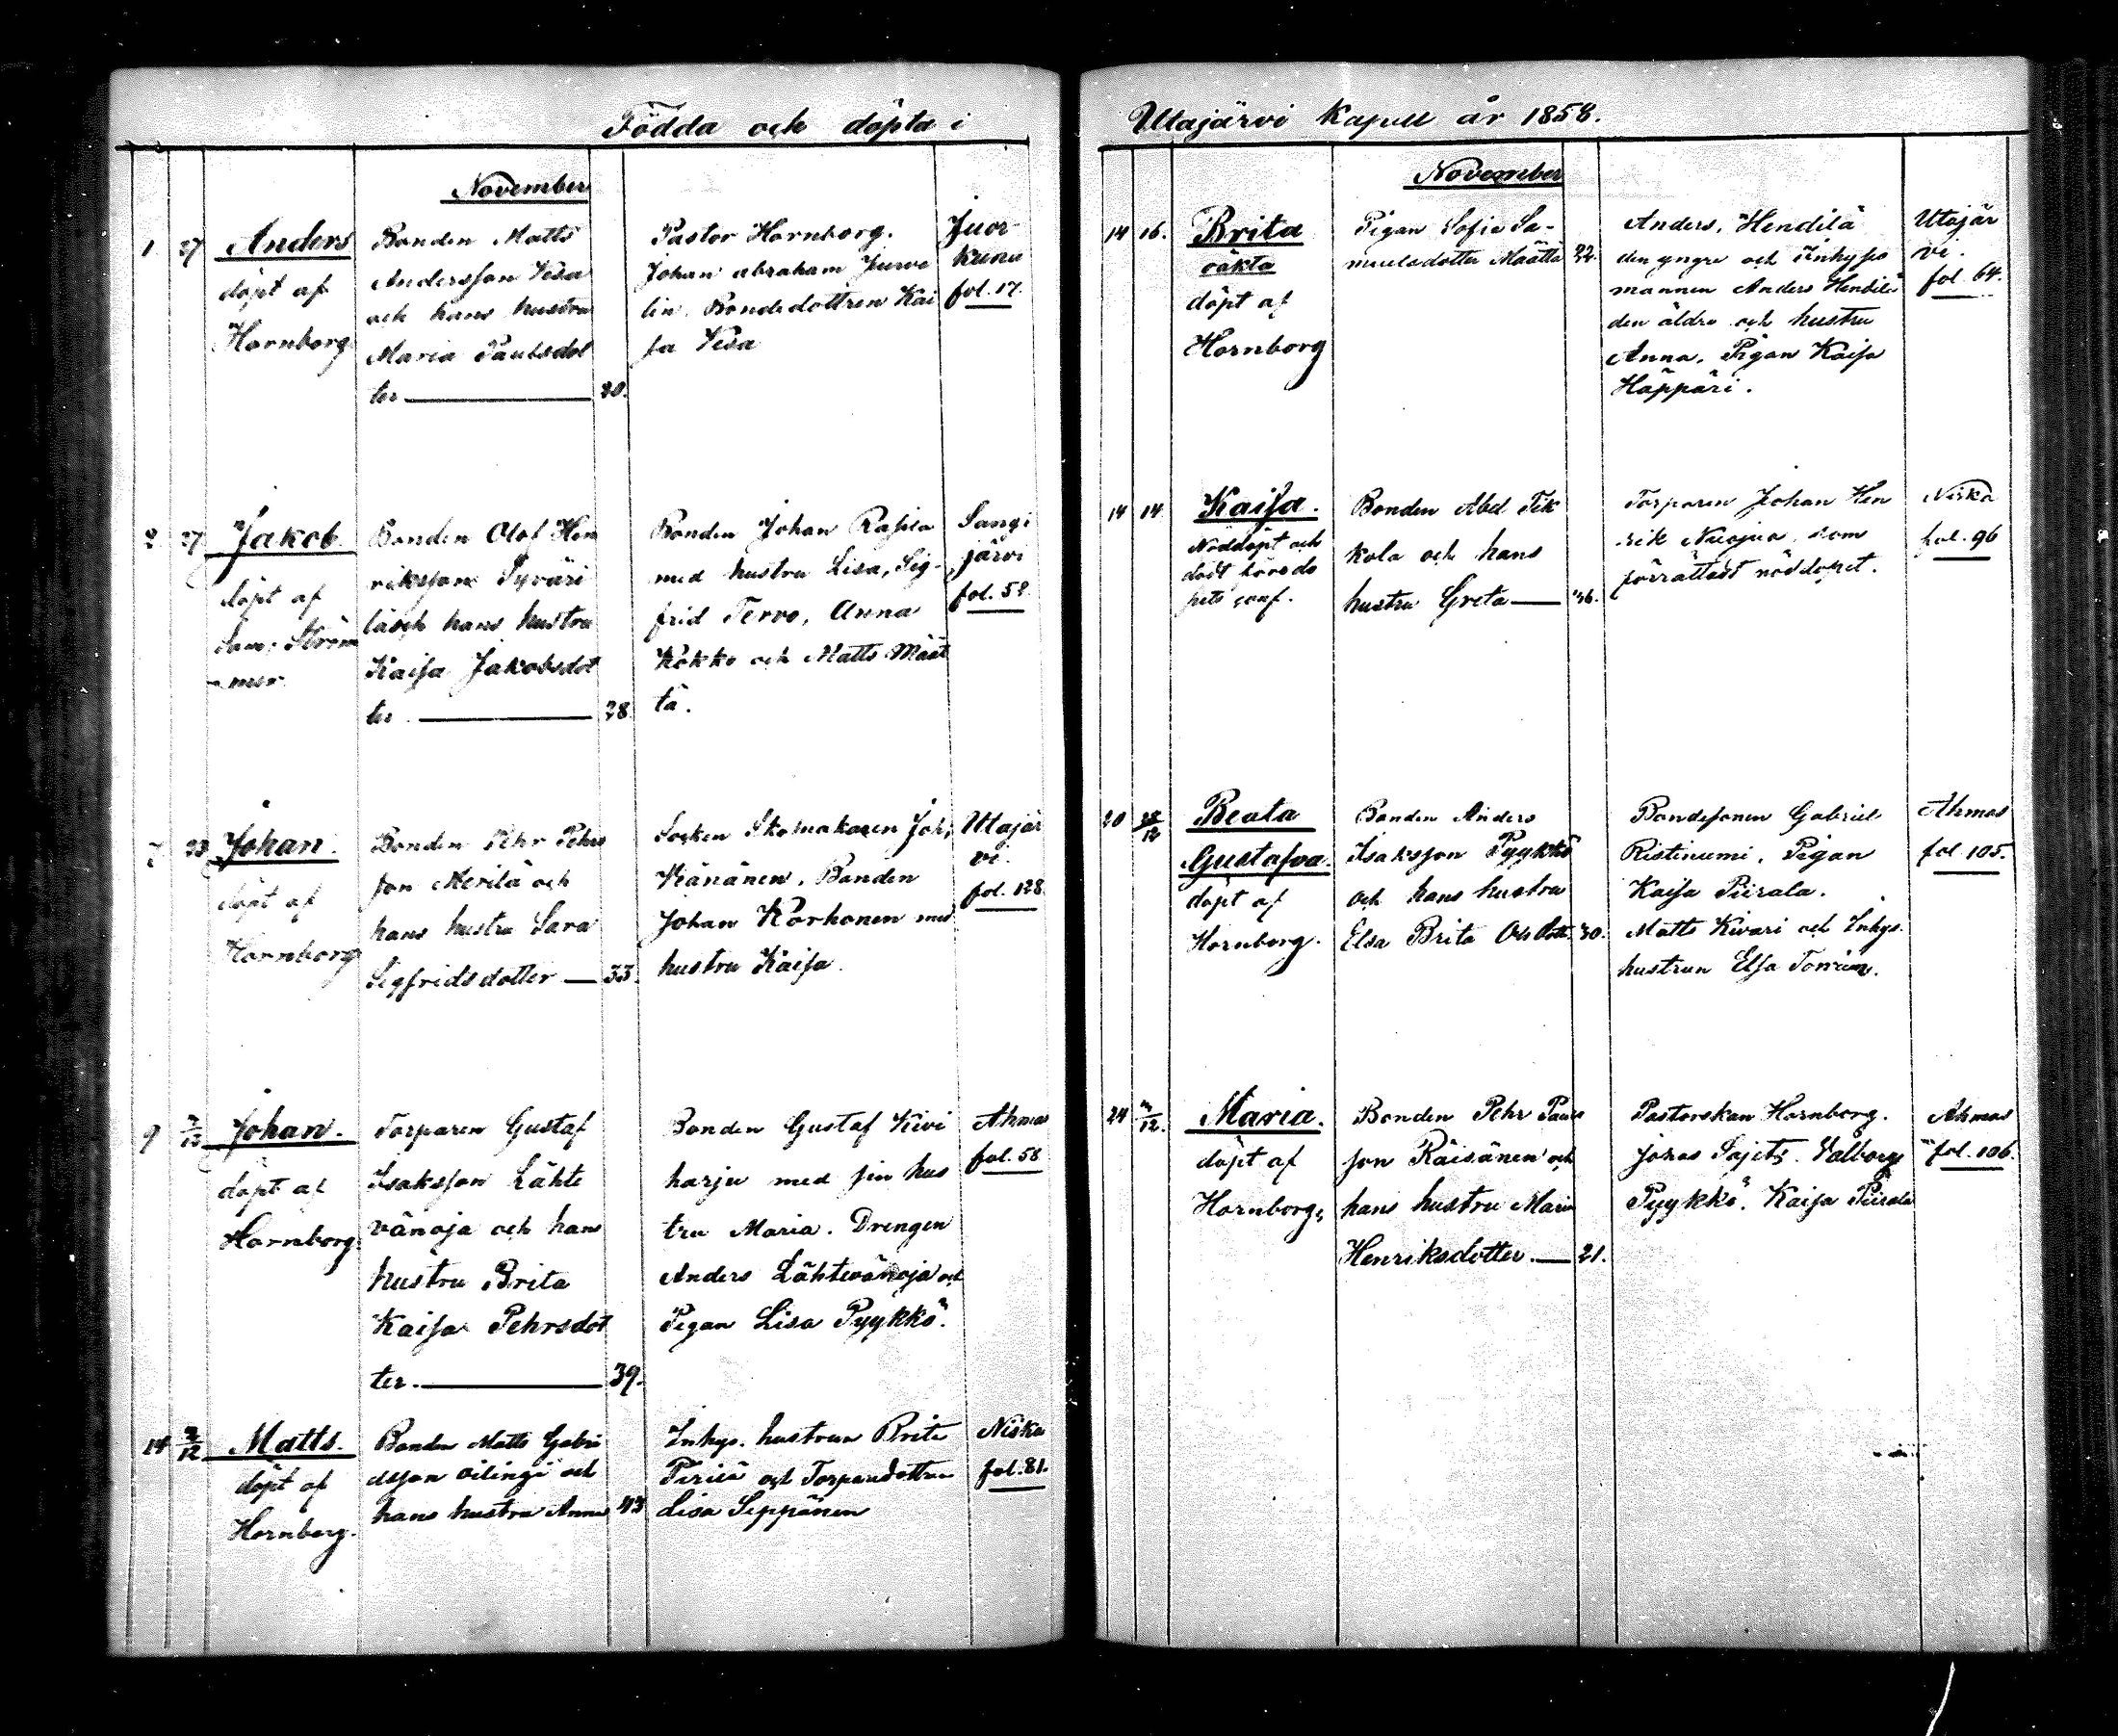 Födda och döpta i
November
1. 27 Anders
döpt af
Hornborg
Bonden Matts
Andersson Vesa
och hans hustru
Maria Paulsdot
ter
Pastor Hornborg.
Johan abraham Jurve
lin. Bondedottren Kai
sa Vesa
Juor-
kuna
fol. 17.
2. 27 Jakob.
döpt af
Sam. Ström
mer
Bonden Olof Hen
riksson Pyväri
lä och hans hustru
Kaisa Jakobsdot
ter 28.
Bonden Johan Rasila
med hustru Lisa, Sig-
frid Tervo, Anna
Kokko och Matts Määt
tä.
Sangi
järvi
fol. 52.
7 23 Johan.
döpt af
Hornborg
Bonden Pehr Pehrs
son Merilä och
hans hustru Sara
Sigfridsdotter 33.
Socken Skomakaren Joh.
Känänen. Bonden
Johan Korhonen med
hustru Kaisa.
Utajär
vi.
fol. 128.
9 Johan.
döpt af
Hornborg.
Torparen Gustaf
Isaksson Lähte
vänoja och hans
hustru Brita
Kaisa Pehrsdot
ter. 39.
Bonden Gustaf Kivi
harju med sin hus
tru Maria. Drengen
Anders Lähtevänoja och
Pigan Lisa Pyykkö.
Ahmas
fol. 58
14 2/12 Matts.
döpt af
Hornborg.
Bonden Matts Gabri
elsson Oilingi och
hans hustru Anna 43
Inhys. hustrun Brita
och Torparedottren
Lisa Seppänen
Niska
fol. 81.
Utajärvi Kapell år 1858.
November
14 16. Brita
oäkta
döpt af
Hornborg
Pigan Sofia Sa-
muelsdotter Määttä 22.
Anders Hendilä
den yngre och Inhyses
mannen Anders Hendilä
den äldre och hustru
Anna, Pigan Kaisa
Häppäri.
Utajär
vi.
fol. 64.
14 14 Kaisa.
Nöddöpt och
död före do
pets conf.
Bonden Abel Tik
kala och hans
hustru Greta 36.
Torparen Johan Hen
rik Nuojua, som
förrättast nöddopet.
Niska
fol. 96
20 Beata
Gustafva.
döpt af
Hornborg.
Bonden Anders
Isaksson Pyykkö
och hans hustru
Elsa Brita Olsdott. 30.
Bondesonen Gabriel
Ristinumi, Pigan
Kaisa Piirala.
Matts Kivari och Inhys.
hustrun Elsa
Ahmas
fol. 105.
24 Maria.
döpt af
Hornborg.
Bonden Pehr Pauls
son Räisänen och
hans hustru Maria
Henriksdotter. 21.
Pastorskan Hornborg.
Jonas Sajets. Valborg
Pyykkö. Kaisa Piirala
Ahmas
fol. 106.